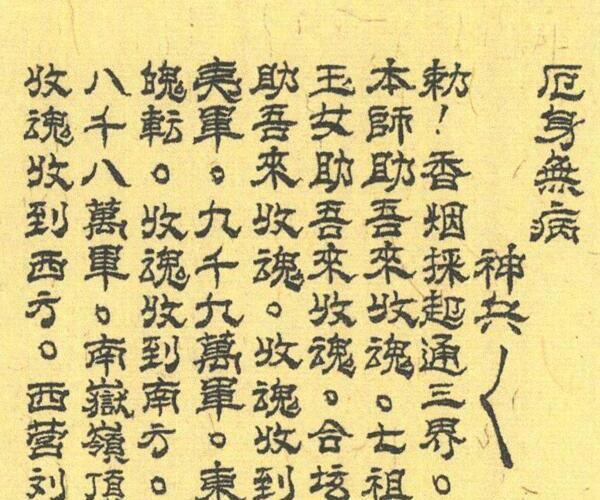 厄身無病
神兵
勅!香烟採起通三界。
本師助吾來收魂。七祖
玉女助吾來收魂。合坛
助吾來收魂。收魂收到
夷軍。九千九萬軍。東
魄転。收魂收到南方。
八千八萬軍。南嶽嶺頂
收魂收到西方。西营刘